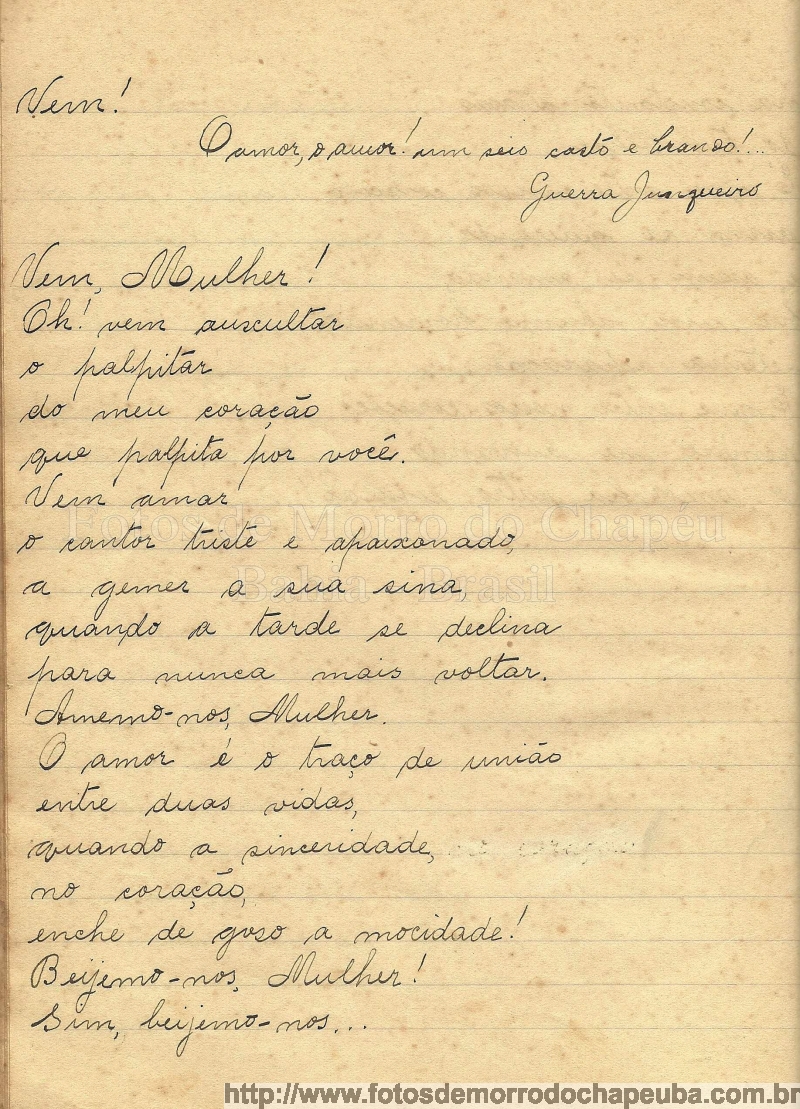 Vem!
O amor, o amor! um seio casto e brando!...
Guerra Junqueiro
Vem, Mulher!
Oh! vem auscultar
o palpitar
do meu coração
que palpita por você.
Vem amar
o cantor triste e apaixonado,
a gemer a sua sina,
quando a tarde se declina
para nunca mais voltar.
Amemo-nos, Mulher.
O amor é o traço de união
entre duas vidas,
quando a sinceridade,
no coração,
enche de goso a mocidade!
Beijemo-nos, Mulher!
Sim, beijemo-nos...
Fotos de Morro do Chapéu
Bahia - Brasil
http://www.fotosdemorrodochapeuba.com.br